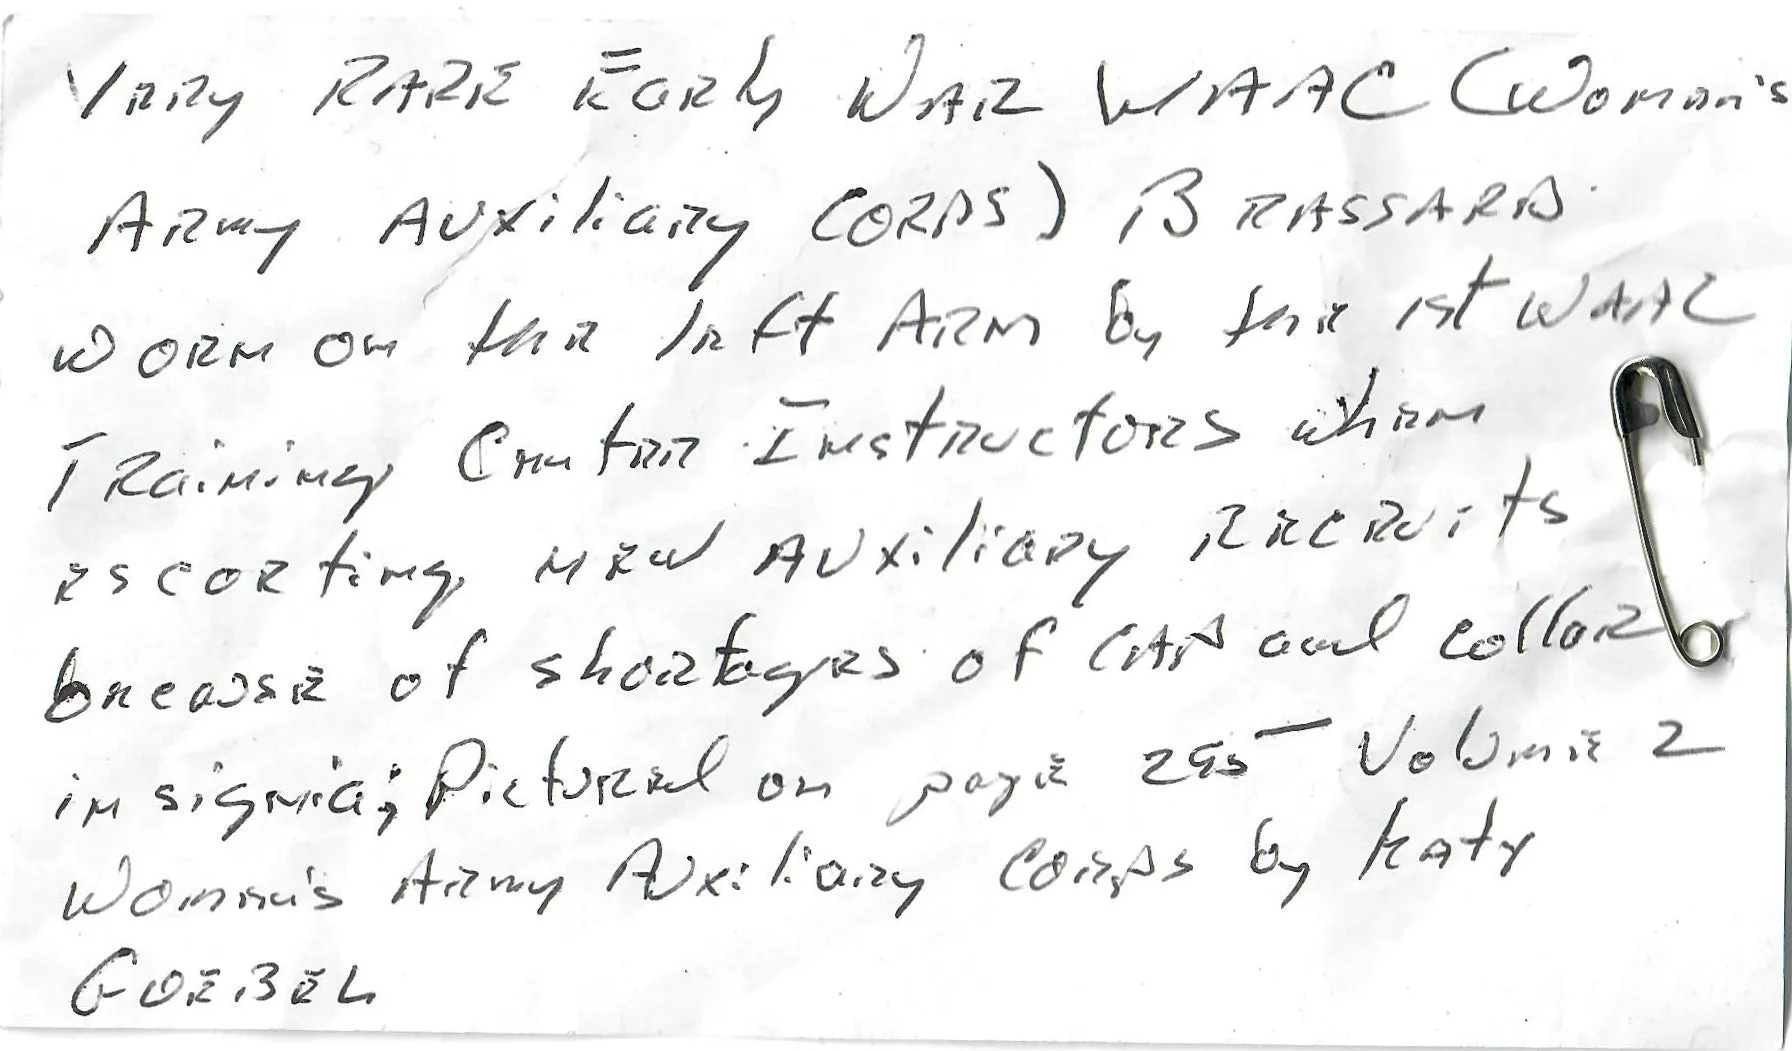 Very RARE Early WAR WAAC (Women's
Army Auxiliary CORPS) BRASSARD
worn on the left Arm by the 1st WAAC
Training Center Instructors when
escorting new Auxiliary recruits
because of shortages of CAP and collar
insignia; Pictured on page 295 Volume 2
Women's Army Auxiliary Corps by Katy
GOEBEL